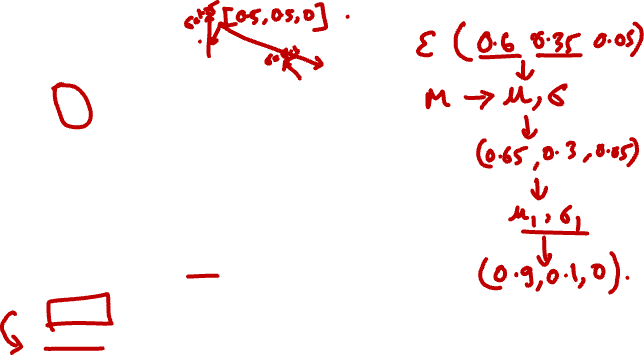 [0.5, 0.5, 0].
E (0.6 0.35 0.05)
M → μ, σ
(0.65, 0.3, 0.05)
μ₁, σ₁
(0.9, 0.1, 0).